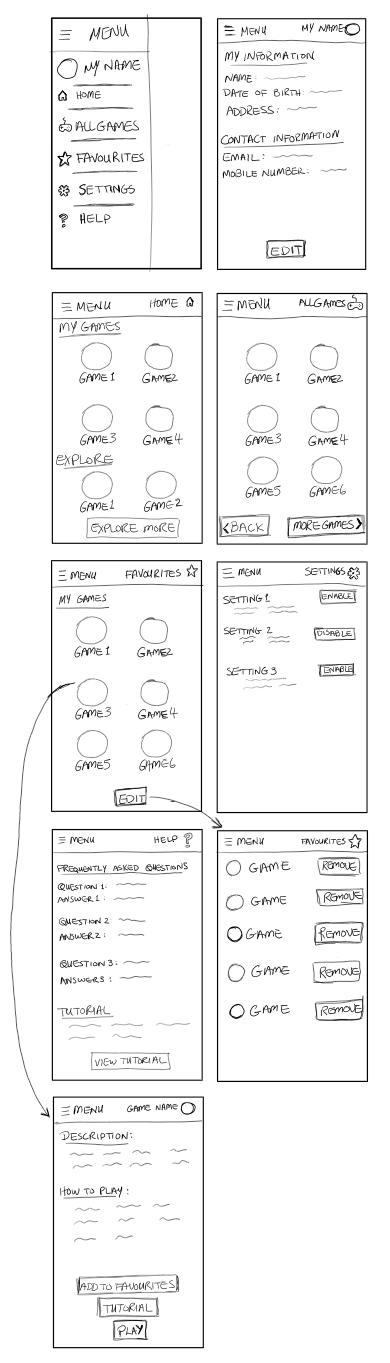 MENU
MY NAME
HOME
ALLGAMES
FAVOURITES
SETTINGS
HELP
MENU MY NAME
MY INFORMATION
NAME:
DATE OF BIRTH:
ADDRESS:
CONTACT INFORMATION
EMAIL:
MOBILE NUMBER:
EDIT
MENU HOME
MY GAMES
GAME 1 GAME2
GAME3 GAME 4
EXPLORE
GAME 1 GAME 2
EXPLORE MORE
MENU ALLGAMES
GAME 1 GAME2
GAME3 GAME 4
GAME5 GAME6
<BACK MORE GAMES>
MENU FAVOURITES
MY GAMES
GAME 1 GAME2
GAME3 GAME 4
GAME5 GAME6
EDIT
MENU SETTINGS
SETTING 1 ENABLE
SETTING 2 DISABLE
SETTING 3 ENABLE
MENU HELP ?
FREQUENTLY ASKED QUESTIONS
QUESTION 1:
ANSWER 1:
QUESTION 2:
ANSWER 2:
QUESTION 3:
ANSWER 3:
TUTORIAL
VIEW TUTORIAL
MENU FAVOURITES
GAME REMOVE
GAME REMOVE
GAME REMOVE
GAME REMOVE
GAME REMOVE
MENU GAME NAME
DESCRIPTION:
HOW TO PLAY:
ADD TO FAVOURITES
TUTORIAL
PLAY